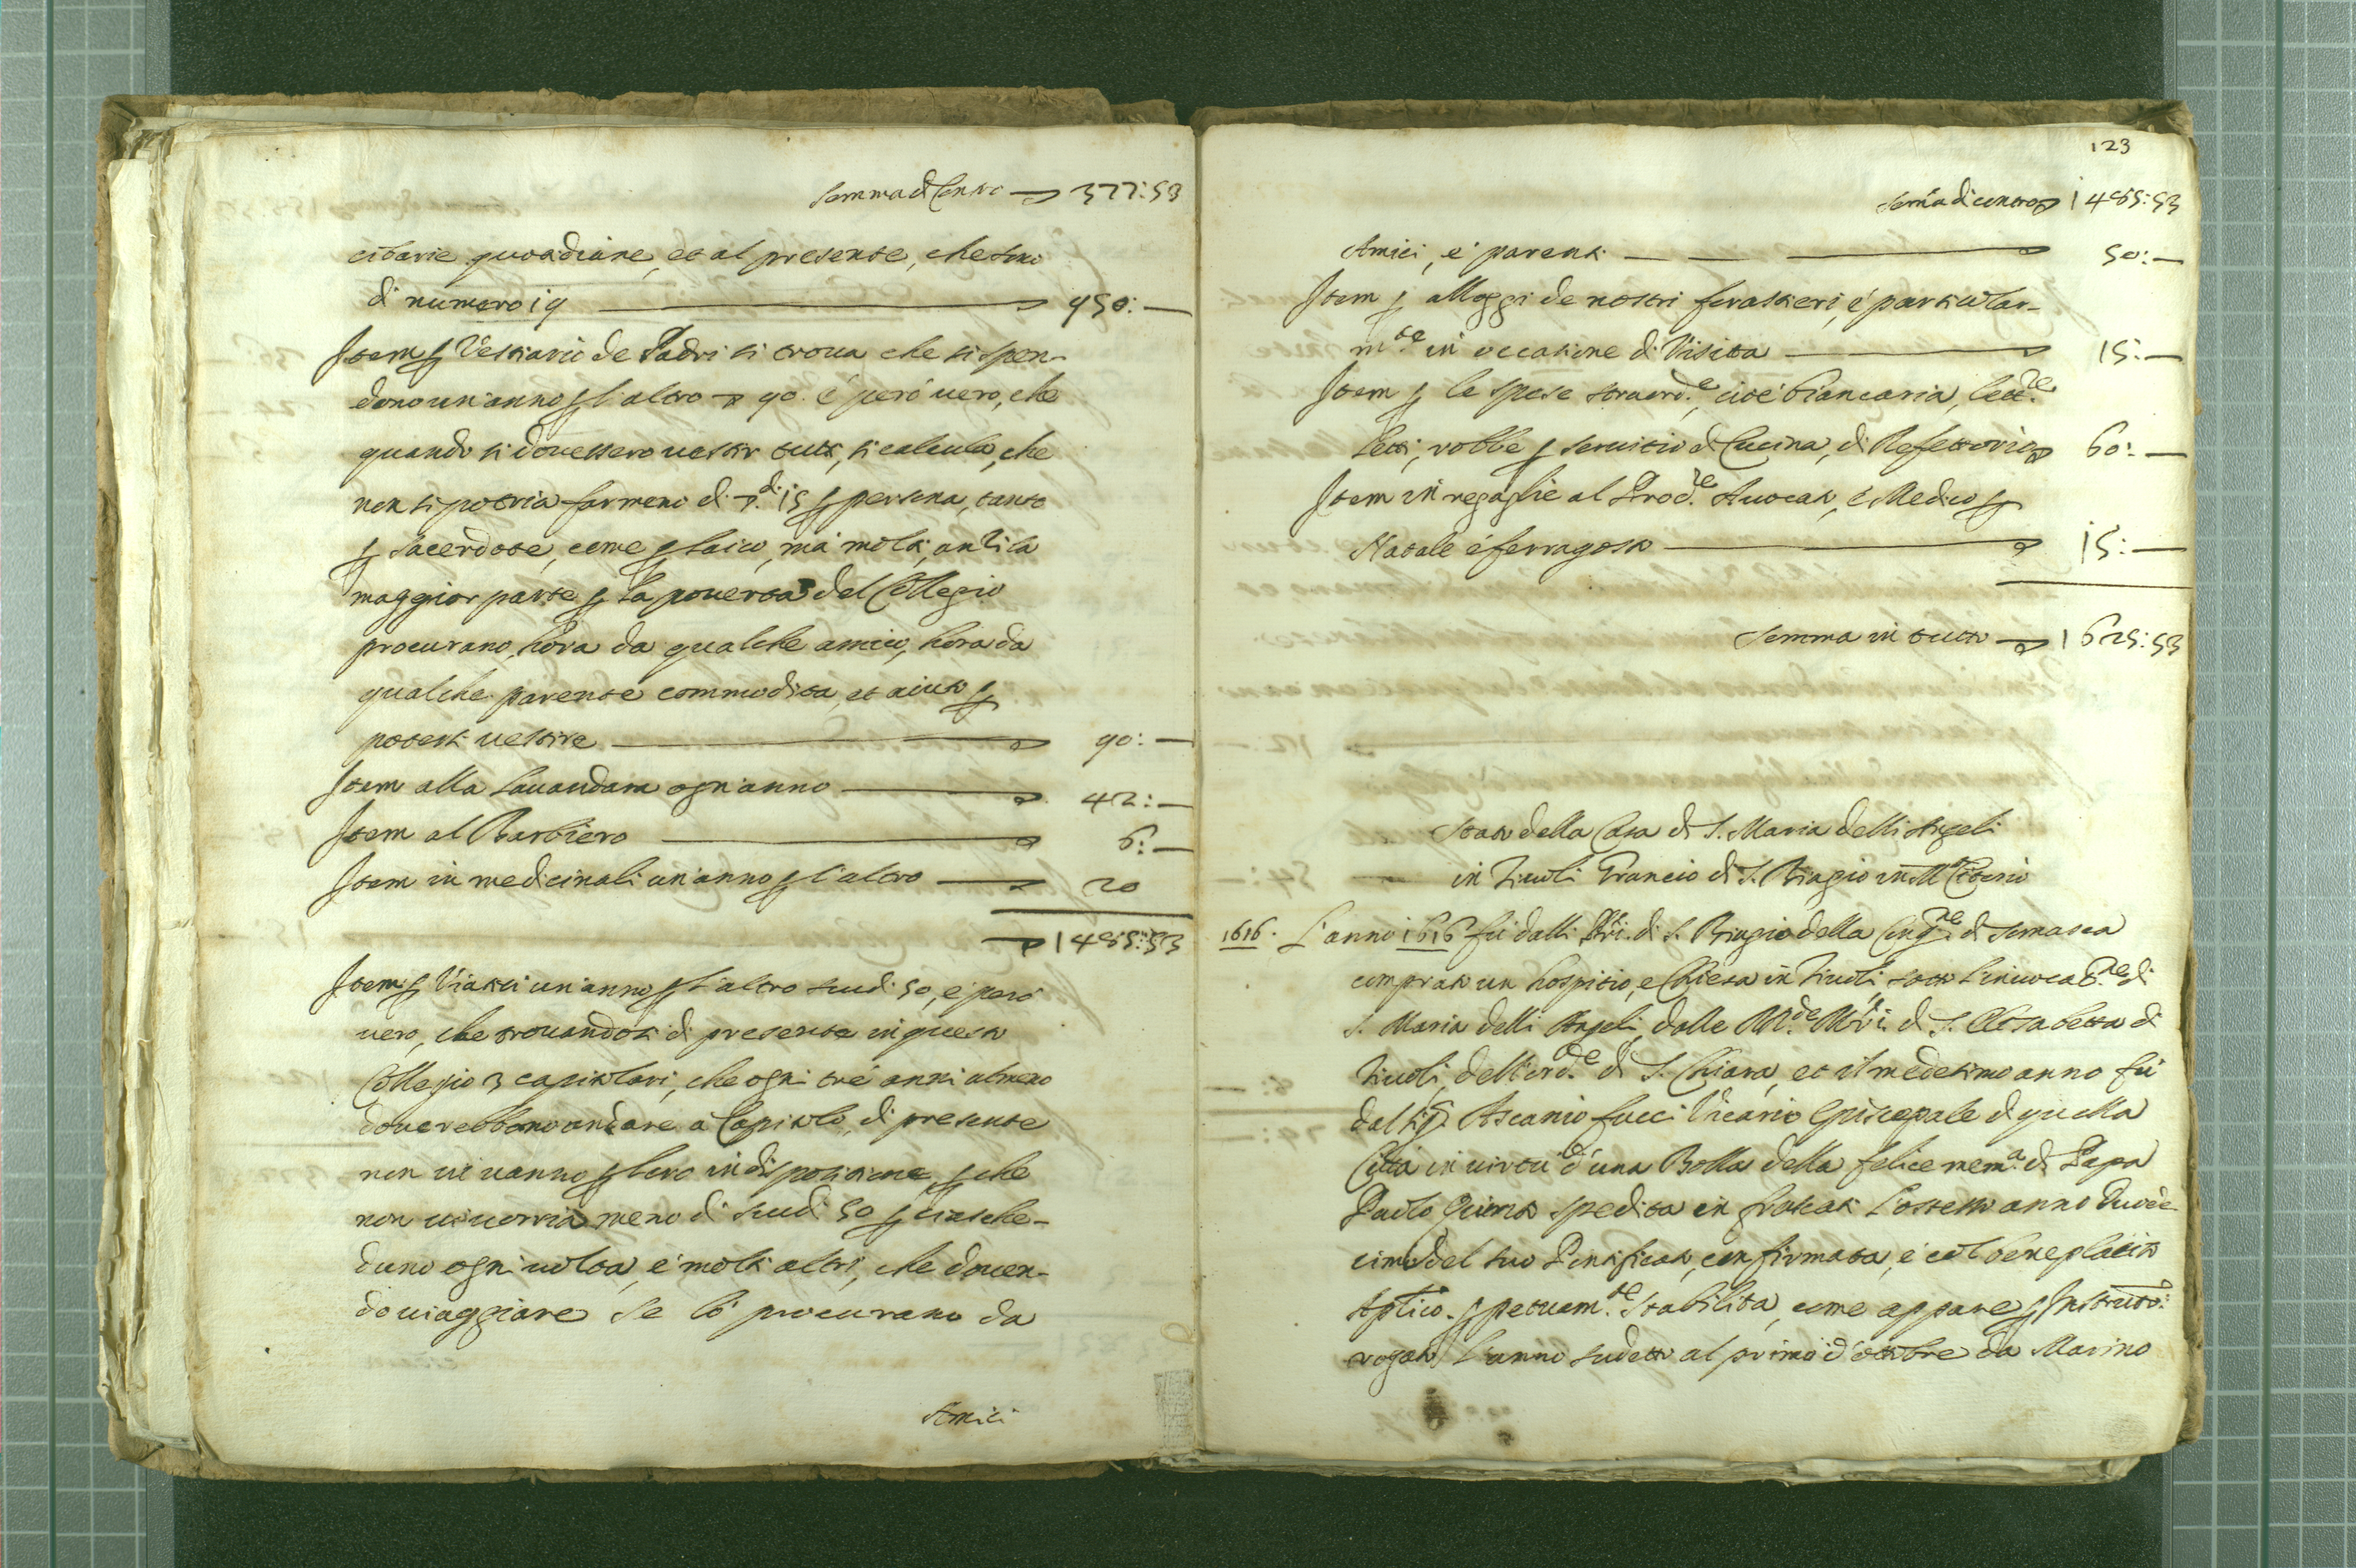 Somma di contro 377:53
cibarie quotidiane, et al presente, che sono
di numero 19 950:—
Item ꝑ Vestiario de Padri si troua che si spen-
dono un'anno ꝑ l'altro ▽ 90. é peró uero, che
quando si douessero uestir tutti, si calcula, che
non si potria far meno di ▽.di 15 ꝑ persona, tanto
ꝑ sacerdote, come ꝑ laico, má molti, anzi la
maggior parte ꝑ la pouertá del Collegio
procurano, hora da qualche amico, hora da
qualche parente commoditá, et aiuto ꝑ
potersi uestire 90:—
Item alla Lauandara ogn'anno 42:—
Item al Barbiero 6:—
Item in medicinali un'anno ꝑ l'altro 20
1485:53
Item ꝑ Viatici un'anno ꝑ l'altro scudi 50, é peró
uero, che trouandosi di presente in questo
Collegio 3 capitolari, che ogni tré anni almeno
douerebbono andare á Capitolo, di presente
non ui uanno ꝑ loro indispositione, ꝑ che
non ui uorria meno di scudi 50 ꝑ ciasche-
duno ogni uolta, é molti altri, che douen-
do uiaggiare se ló procurano da
Amici
123
Somma di contro 1485:53
Amici, é parenti 50:—
Item ꝑ alloggi de nostri forastieri, é particolar-
m.te in occasione di Visita 15:—
Item ꝑ le spese straord.e, cioé biancaria, lett.re
Letti, robbe ꝑ seruitio di Cucina, di Refettorio 60:—
Item in regaglie al Proc.re Auocato, é Medico ꝑ
Natale é ferragosto 15:—
Somma in tutto 1625:53
Stato della Casa di S. Maria delli Angeli
in Tiuoli Grancio di S. Biagio in M. Citorio
1616. L'anno 1616 fú dalli PP.ri di S. Biagio della Cong.ne di Somasca
comprato un hospitio, e Chiesa in Tiuoli, sotto l'inuocat.ne di
S. Maria delli Angeli, dalle M.de M.ri di S. Elisabetta di
Tiuoli, dell'ord.e di S. Chiara, et il medesimo anno fú
dal Sig.r Ascanio fucci Vicario Episcopale di quella
Cittá in uirtú d'una Bolla della felice mem.a di Papa
Paolo Quinto spedita in frascati l'istesso anno duode-
cimo del suo Pontificato, confirmata, é col beneplacito
Aplico. ꝑpetuam.te stabilita, come appare ꝑ Instruto:
rogato l'anno sudetto al primo d'ottobre da Marino